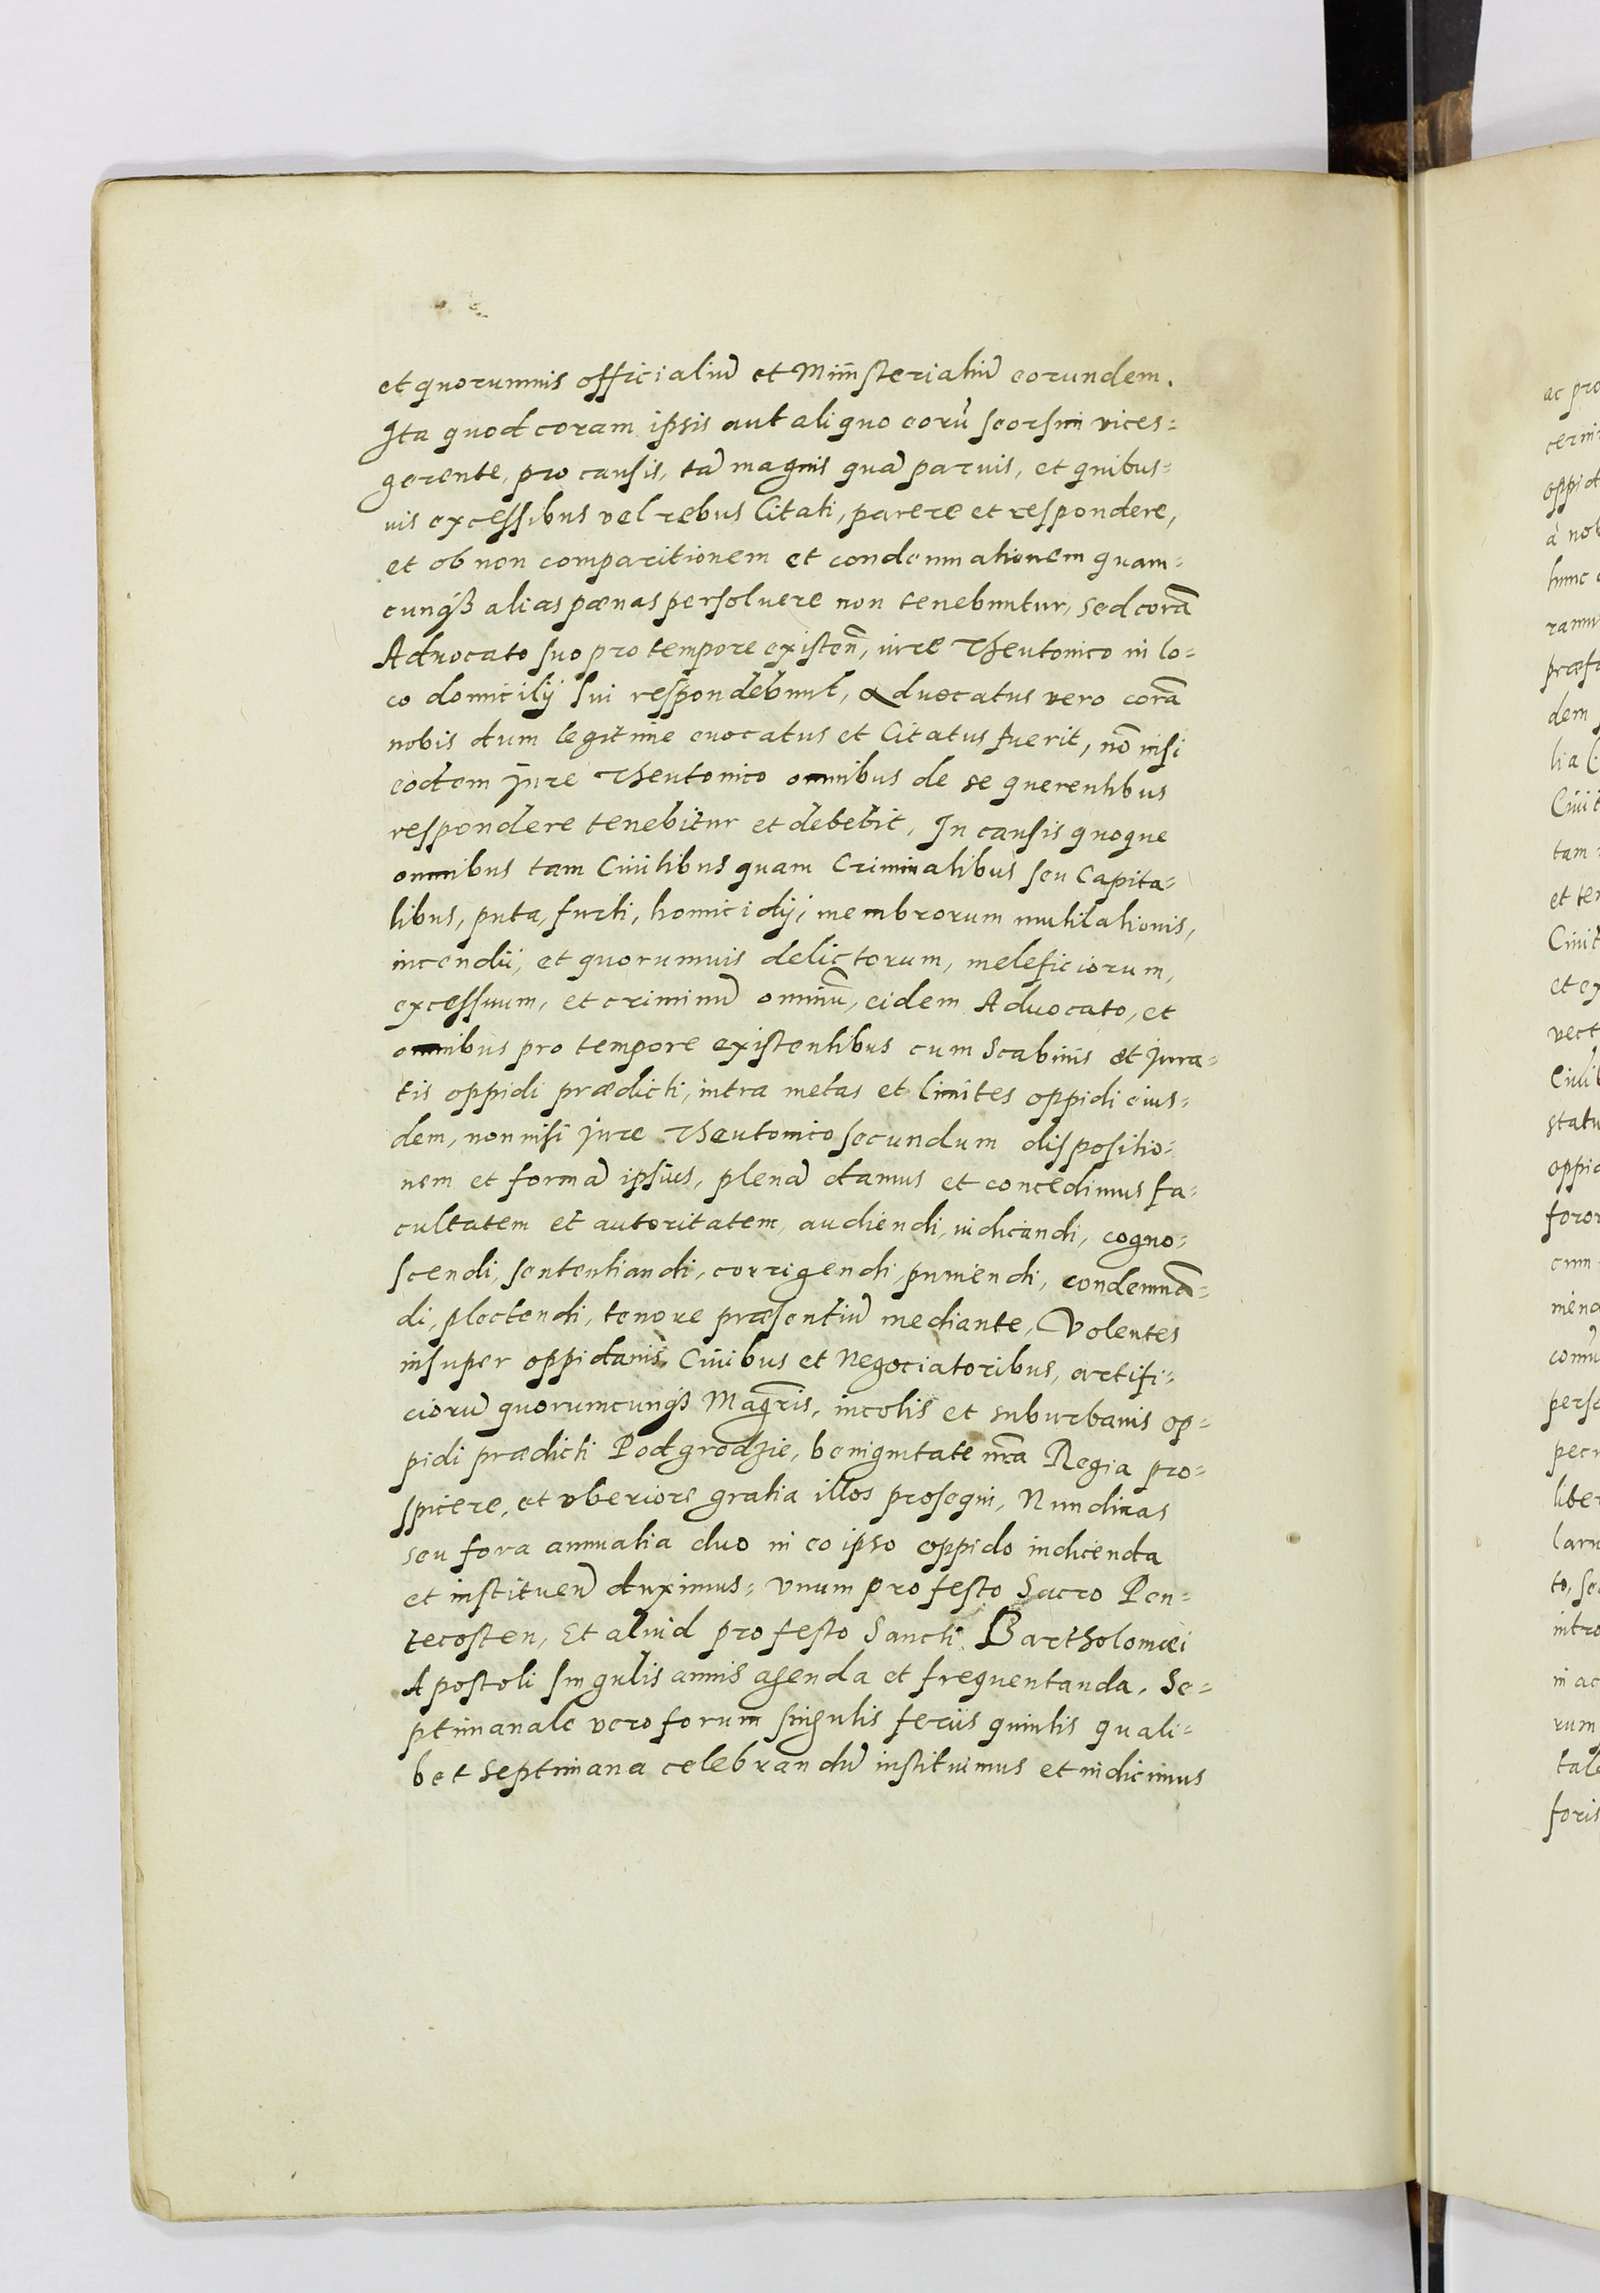 et quorumvis officialiũ et Miñisterialiũ eorundem.
Ita quod coram ipsis aut aliquo eorũ seorsim vices=
gerente, pro causis, tã magnis quã parvis, et quibus=
vis excessibus vel rebus Citati, parere et respondere,
et ob non comparitionem et condemnationem quam=
cunqꝫ alias pœnas persolvere non tenebuntur, sed corã
Advocato suo pro tempore existeñ, iure Theutonico in lo=
co domicilij sui respondebunt, Advocatus vero corã
nobis dum legitime evocatus et Citatus fuerit, nõ nisi
eodem Jure Theutonico omnibus de se querentibus
respondere tenebitur et debebit, In causis quoque
omnibus tam Civilibus quam Criminalibus seu Capita=
libus, puta, furti, homicidij, membrorum mutilationis,
incendii, et quorumvis delictorum, meleficiorum,
excessuum, et criminũ omniũ, eidem Advocato, et
omnibus pro tempore existentibus cum Scabinis et Jura=
tis oppidi prædicti, intra metas et limites oppidi eius=
dem, non nisi Jure Theutonico secundum dispositio=
nem et formã ipsius, plenã damus et concedimus fa=
cultatem et autoritatem, audiendi, iudicandi, cogno=
scendi, sententiandi, corrigendi, puniendi, condemnã=
di, plectendi, tenore præsentiũ mediante, Volentes
insuper oppidanis, Civibus et Negociatoribus, artifi=
ciorũ quorumcunqꝫ Magr̃is, incolis et suburbanis op=
pidi prædicti Podgrodzie, benignitate nr̃a Regia pro=
spicere, et uberiore gratia illos prosequi, Nundinas
seu fora annualia duo in eo ipso oppido indicenda
et institueñ duximus= Unum pro festo Sacro Pen=
tecosten, Et aliud pro festo Sancti Bartholomæi
Apostoli singulis annis agenda et frequentanda, Se=
ptimanale vero forum singulis feriis quintis quali=
bet Septimana celebrandũ instituimus et indicimus